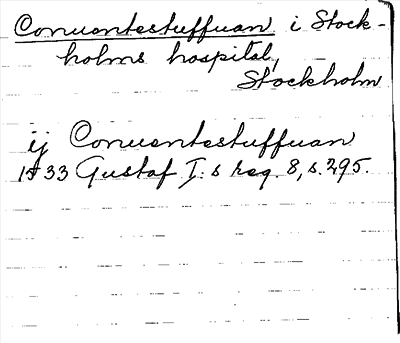 Conuentestuffuan i Stock-
holms hospital,
Stockholm
ij Conuentestuffuan
1533 Gustaf I:s reg. 8, s. 295.